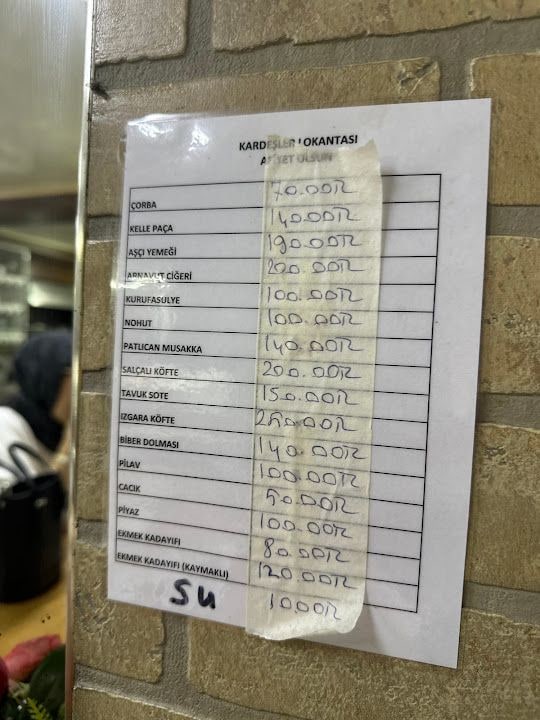 KARDEŞLER LOKANTASI
AFİYET OLSUN
ÇORBA 70.00TL
KELLE PAÇA 140.00TL
AŞÇI YEMEĞİ 190.00TL
ARNAVUT CİĞERİ 200.00TL
KURUFASULYE 100.00TL
NOHUT 100.00TL
PATLICAN MUSAKKA 140.00TL
SALÇALI KÖFTE 200.00TL
TAVUK SOTE 150.00TL
IZGARA KÖFTE 250.00TL
BİBER DOLMASI 140.00TL
PİLAV 100.00TL
CACIK 50.00TL
PİYAZ 100.00TL
EKMEK KADAYIFI 80.00TL
EKMEK KADAYIFI (KAYMAKLI) 120.00TL
SU 10.00TL